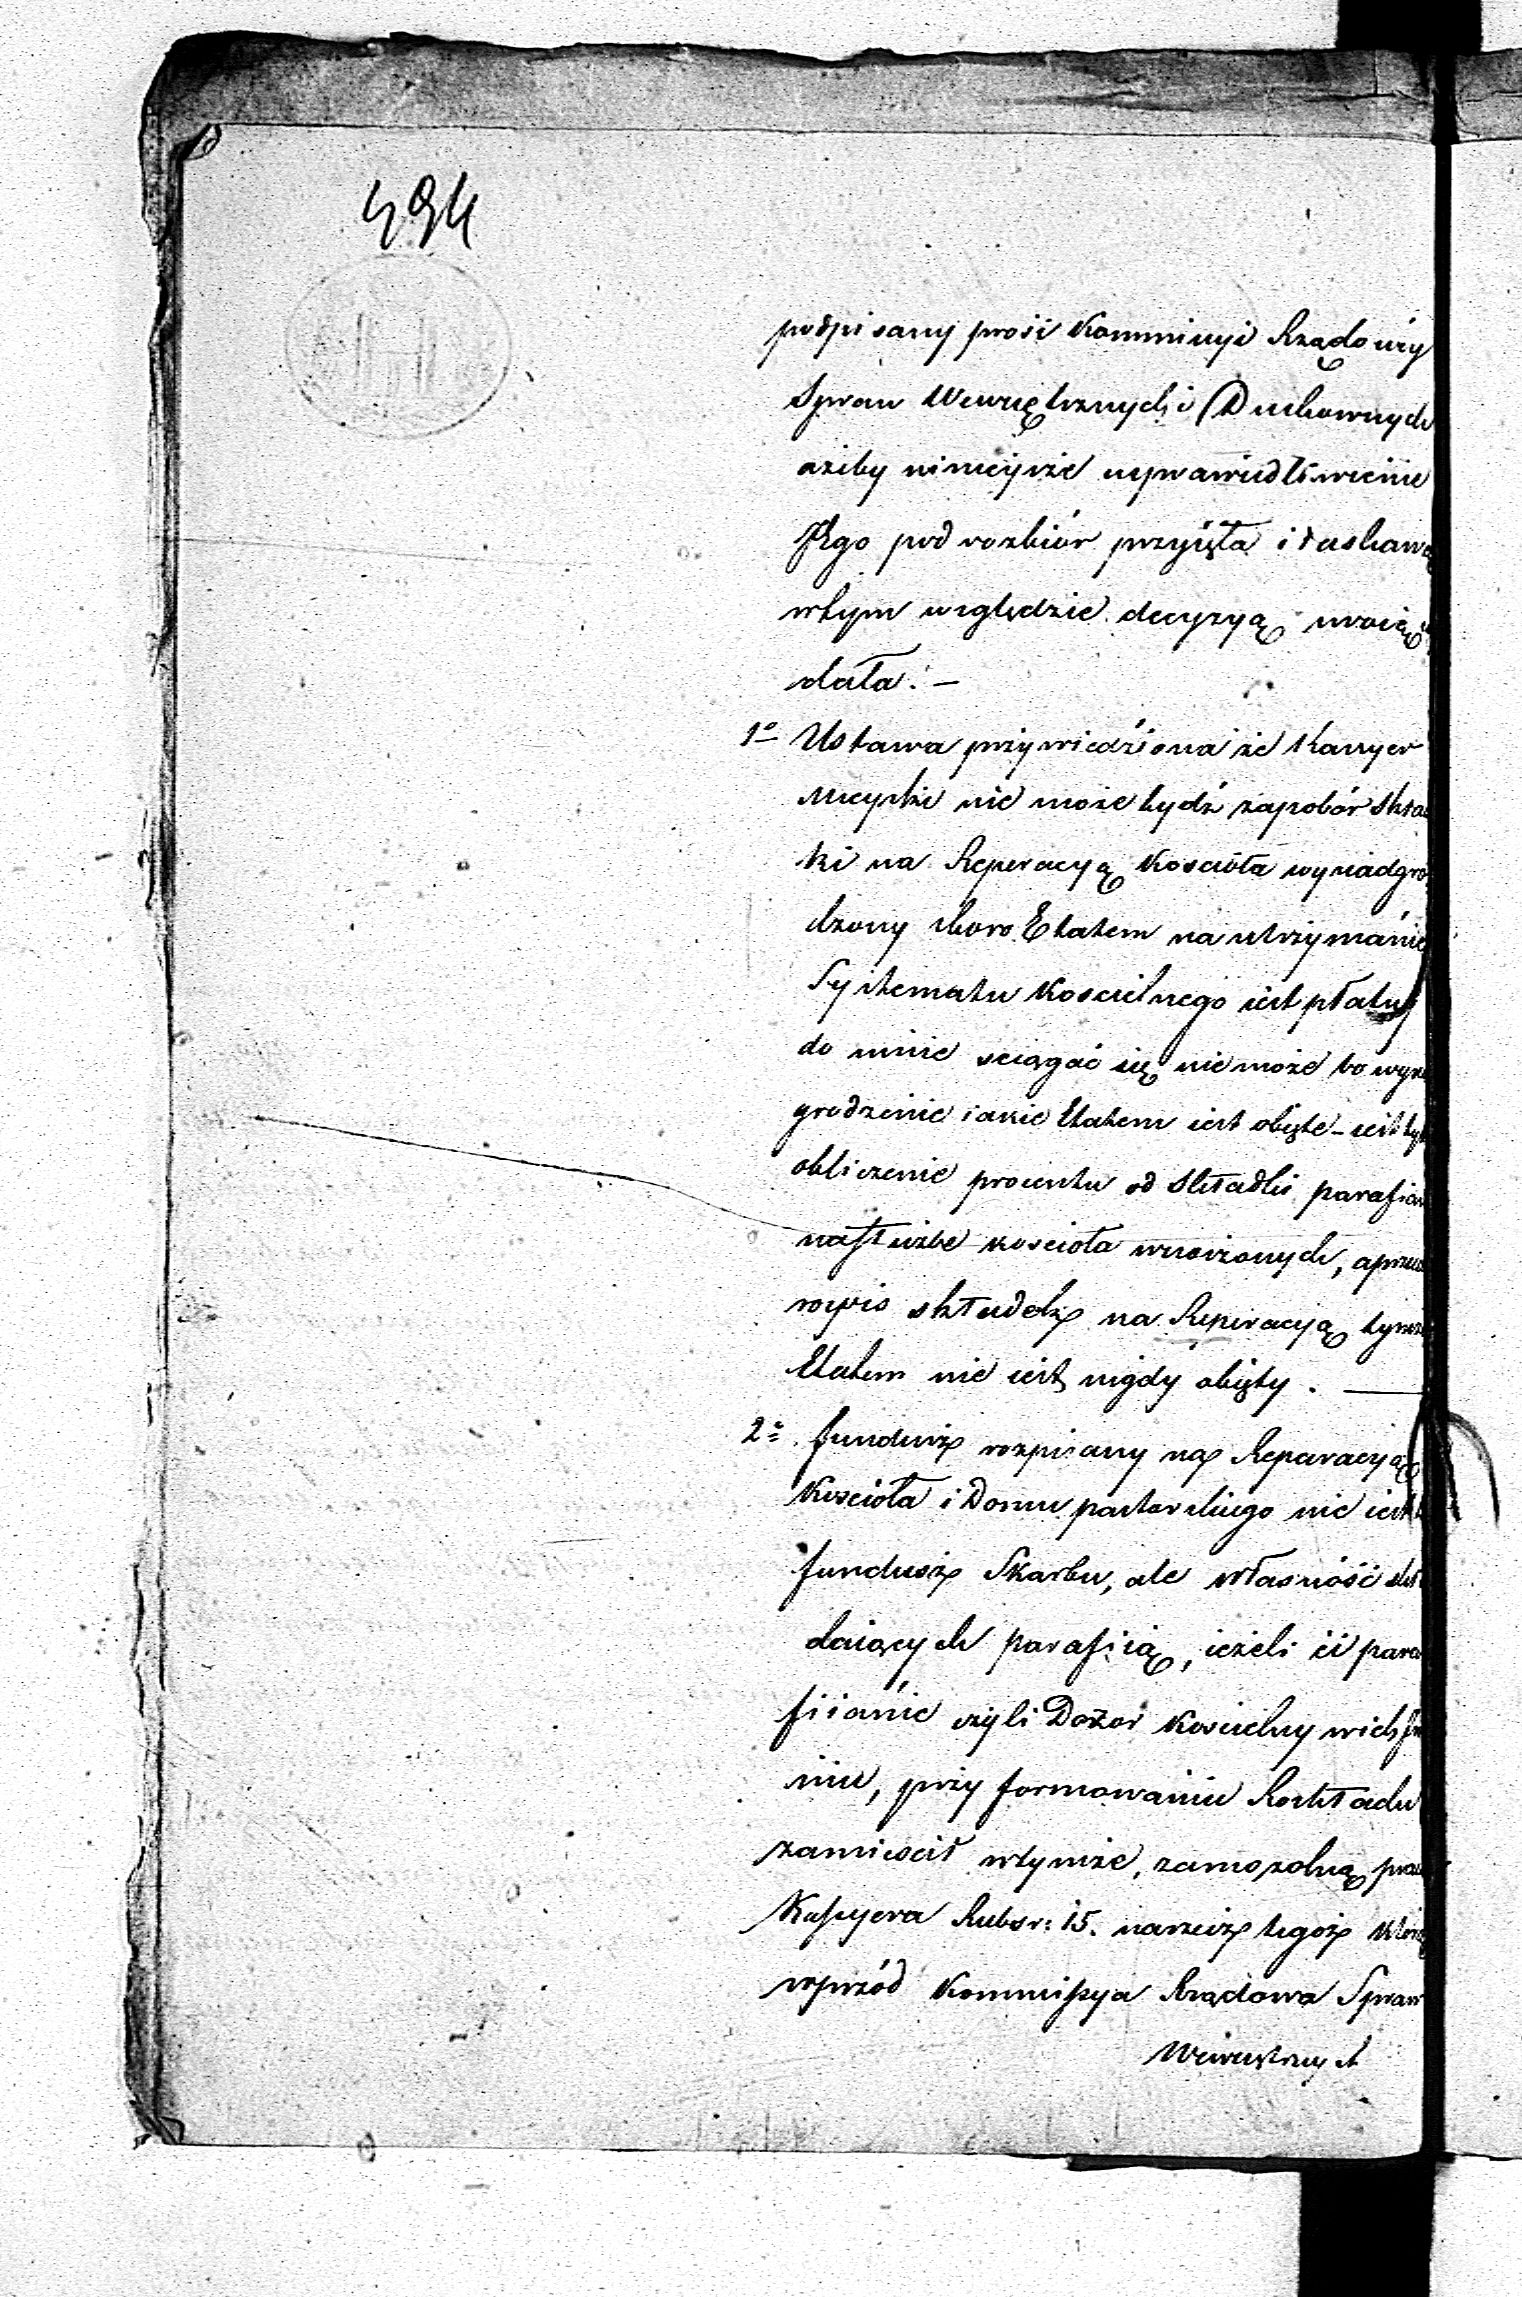 494
podpisany prosi Kommissyi Rządowéy
Spraw Wewnętrznych i Duchownych
ażeby ninieysze usprawiedliwienie
Jego pod rozbiór przyięła i łaskawą
wtym względzie decyzyą swoią
dała. —
1o Ustawa przywiedziona że Kassyer
Mieyski nie może bydź zapobór skład
ki na Reperacyą Kościoła wynadgro
dzony skoro Etatem na utrzymanie
Systematu Koscielnego iest płatny
do mnie sciągać się nie może bo wyna
grodzenie iakie Etatem iest obięte – iest tyl
obliczenie procentu od Składki parafian
nasłużbe kościoła wnoszonych, a
rospis składek na Reperacyą tymże
Etatem nie iest nigdy obięty. —
2o fundusz rozpisany na Reparacyą
Kościoła i Domu pastorskiego nie iest
fundusz Skarbu, ale własność skła
daiących parafią, ieżeli ci para
fiianie czyli Dozor Koscielny wich
niu, przy formowaniu Rozkładu
zamieścił wtymże, zamozolną pracę
Kassyera Rubsr: 15. narzecz tegoż
wprzód Kommissya Rządowa Spraw
Wewnętrznych